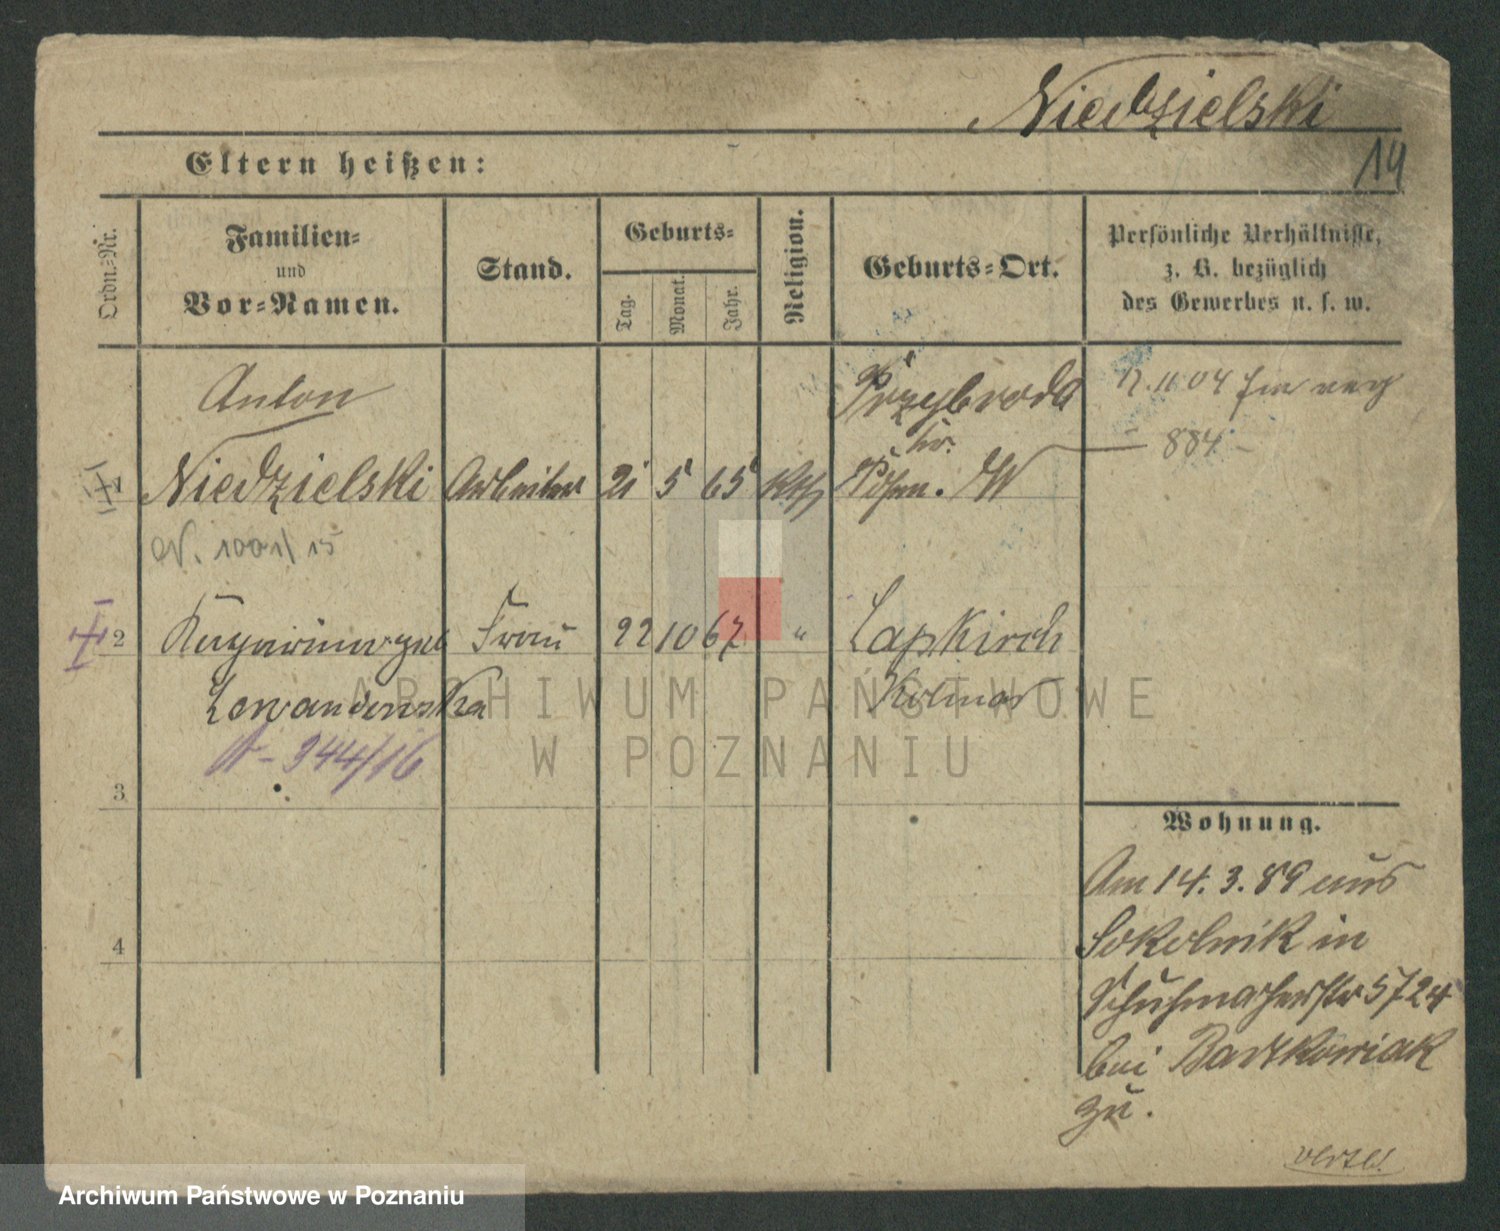 Niedzielski
14
Eltern heißen:
Ordn.-Nr.
Familien-
und
Vor-Namen.
Stand.
Geburts-
Tag.
Monat.
Jahr.
Religion.
Geburts-Ort.
Persönliche Verhältnisse,
z. B. bezüglich
des Gewerbes u. s. w.
Anton
Przybroda
12.11 04
Kr.
884
1 Niedzielski Arbeiter 21 5 65 Kth Posen. W
N. 1001/15
2 Frau 22 10 67 " Lapkirch
Lewandowska Kolmar
N- 944/16
3
Wohnung.
Am 14.3.89 aus
4
Sokolnik in
Schuhmacherstr 5724
bei Bartkowiak
zu.
ARCHIWUM PAŃSTWOWE
W POZNANIU
Archiwum Państwowe w Poznaniu